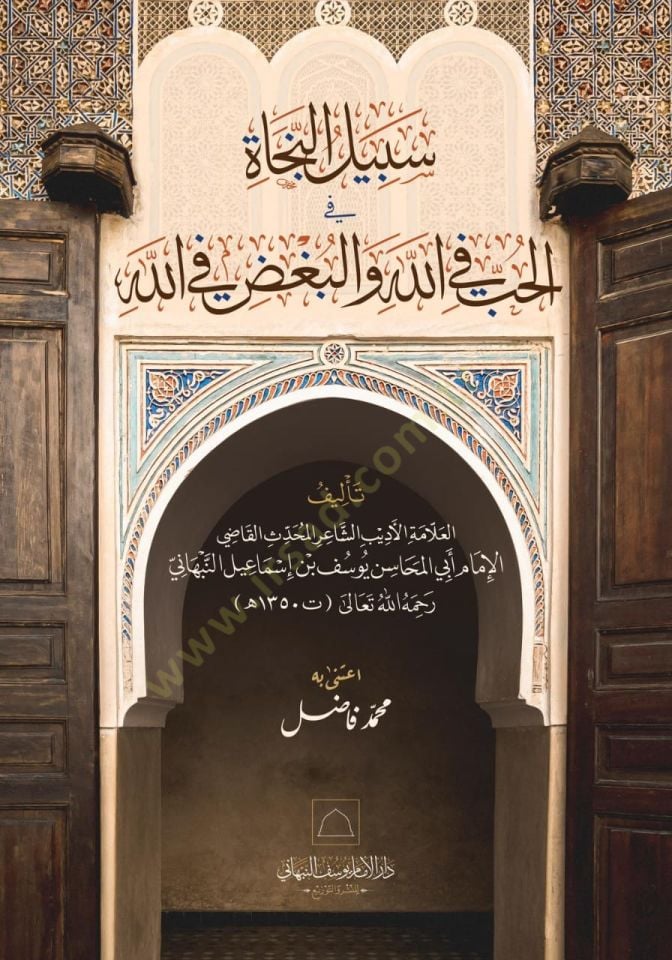 سَبِيلُ النَّجَاةِ
فِي
الحُبِّ فِي اللَّهِ وَالبُغْضِ فِي اللَّهِ
تَأْلِيفُ
العَلَّامَةِ الأَدِيْبِ الشَّاعِرِ المُحَدِّثِ القَاضِي
الإِمَامِ أَبِي المَحَاسِنِ يُوسُفَ بْنِ إِسْمَاعِيلَ النَّبْهَانِيِّ
رَحِمَهُ اللَّهُ تَعَالَى (ت ١٣٥٠هـ)
اعتنى به
محمّد فاضل
دَارُ الإِمَامِ يُوسُفَ النَّبْهَانِي
لِلنَّشْرِ وَالتَّوْزِيْعِ